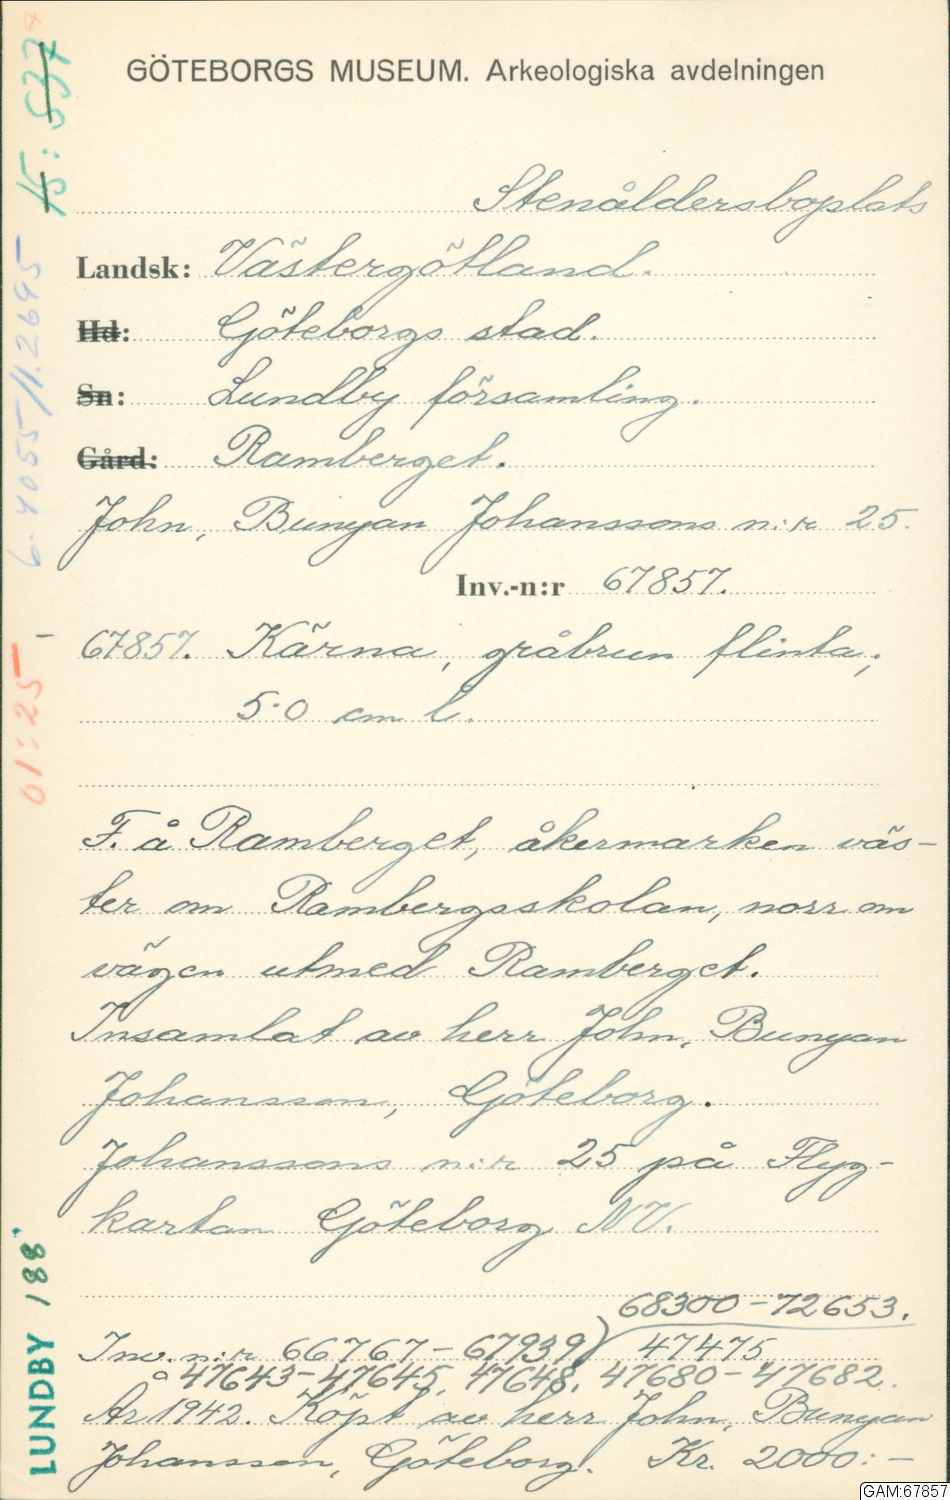 GÖTEBORGS MUSEUM. Arkeologiska avdelningen
Stenåldersboplats
Landsk: Västergötland.
Hd: Göteborgs stad.
Sn: Lundby församling.
Gård: Ramberget.
John, Bunyan Johanssons n:r 25.
Inv.-n:r 67857.
67857. Kärna, gråbrun flinta,
5.0 cm l.
F. å Ramberget, åkermarken väs-
ter om Rambergsskolan, norr om
vägen utmed Ramberget.
Insamlat av herr John, Bunyan
Johansson, Göteborg.
Johanssons n:r 25 på Flyg-
kartan Göteborg NV.
68300-72653.
Inv. n:r 66767-67939) 47475,
47643-47645, 47648, 47680-47682.
År 1942. Köpt av herr John, Bunyan
Johansson, Göteborg. Kr. 2000:-
15:537
6-4055/1.2695
01:25
LUNDBY 188
GAM:67857